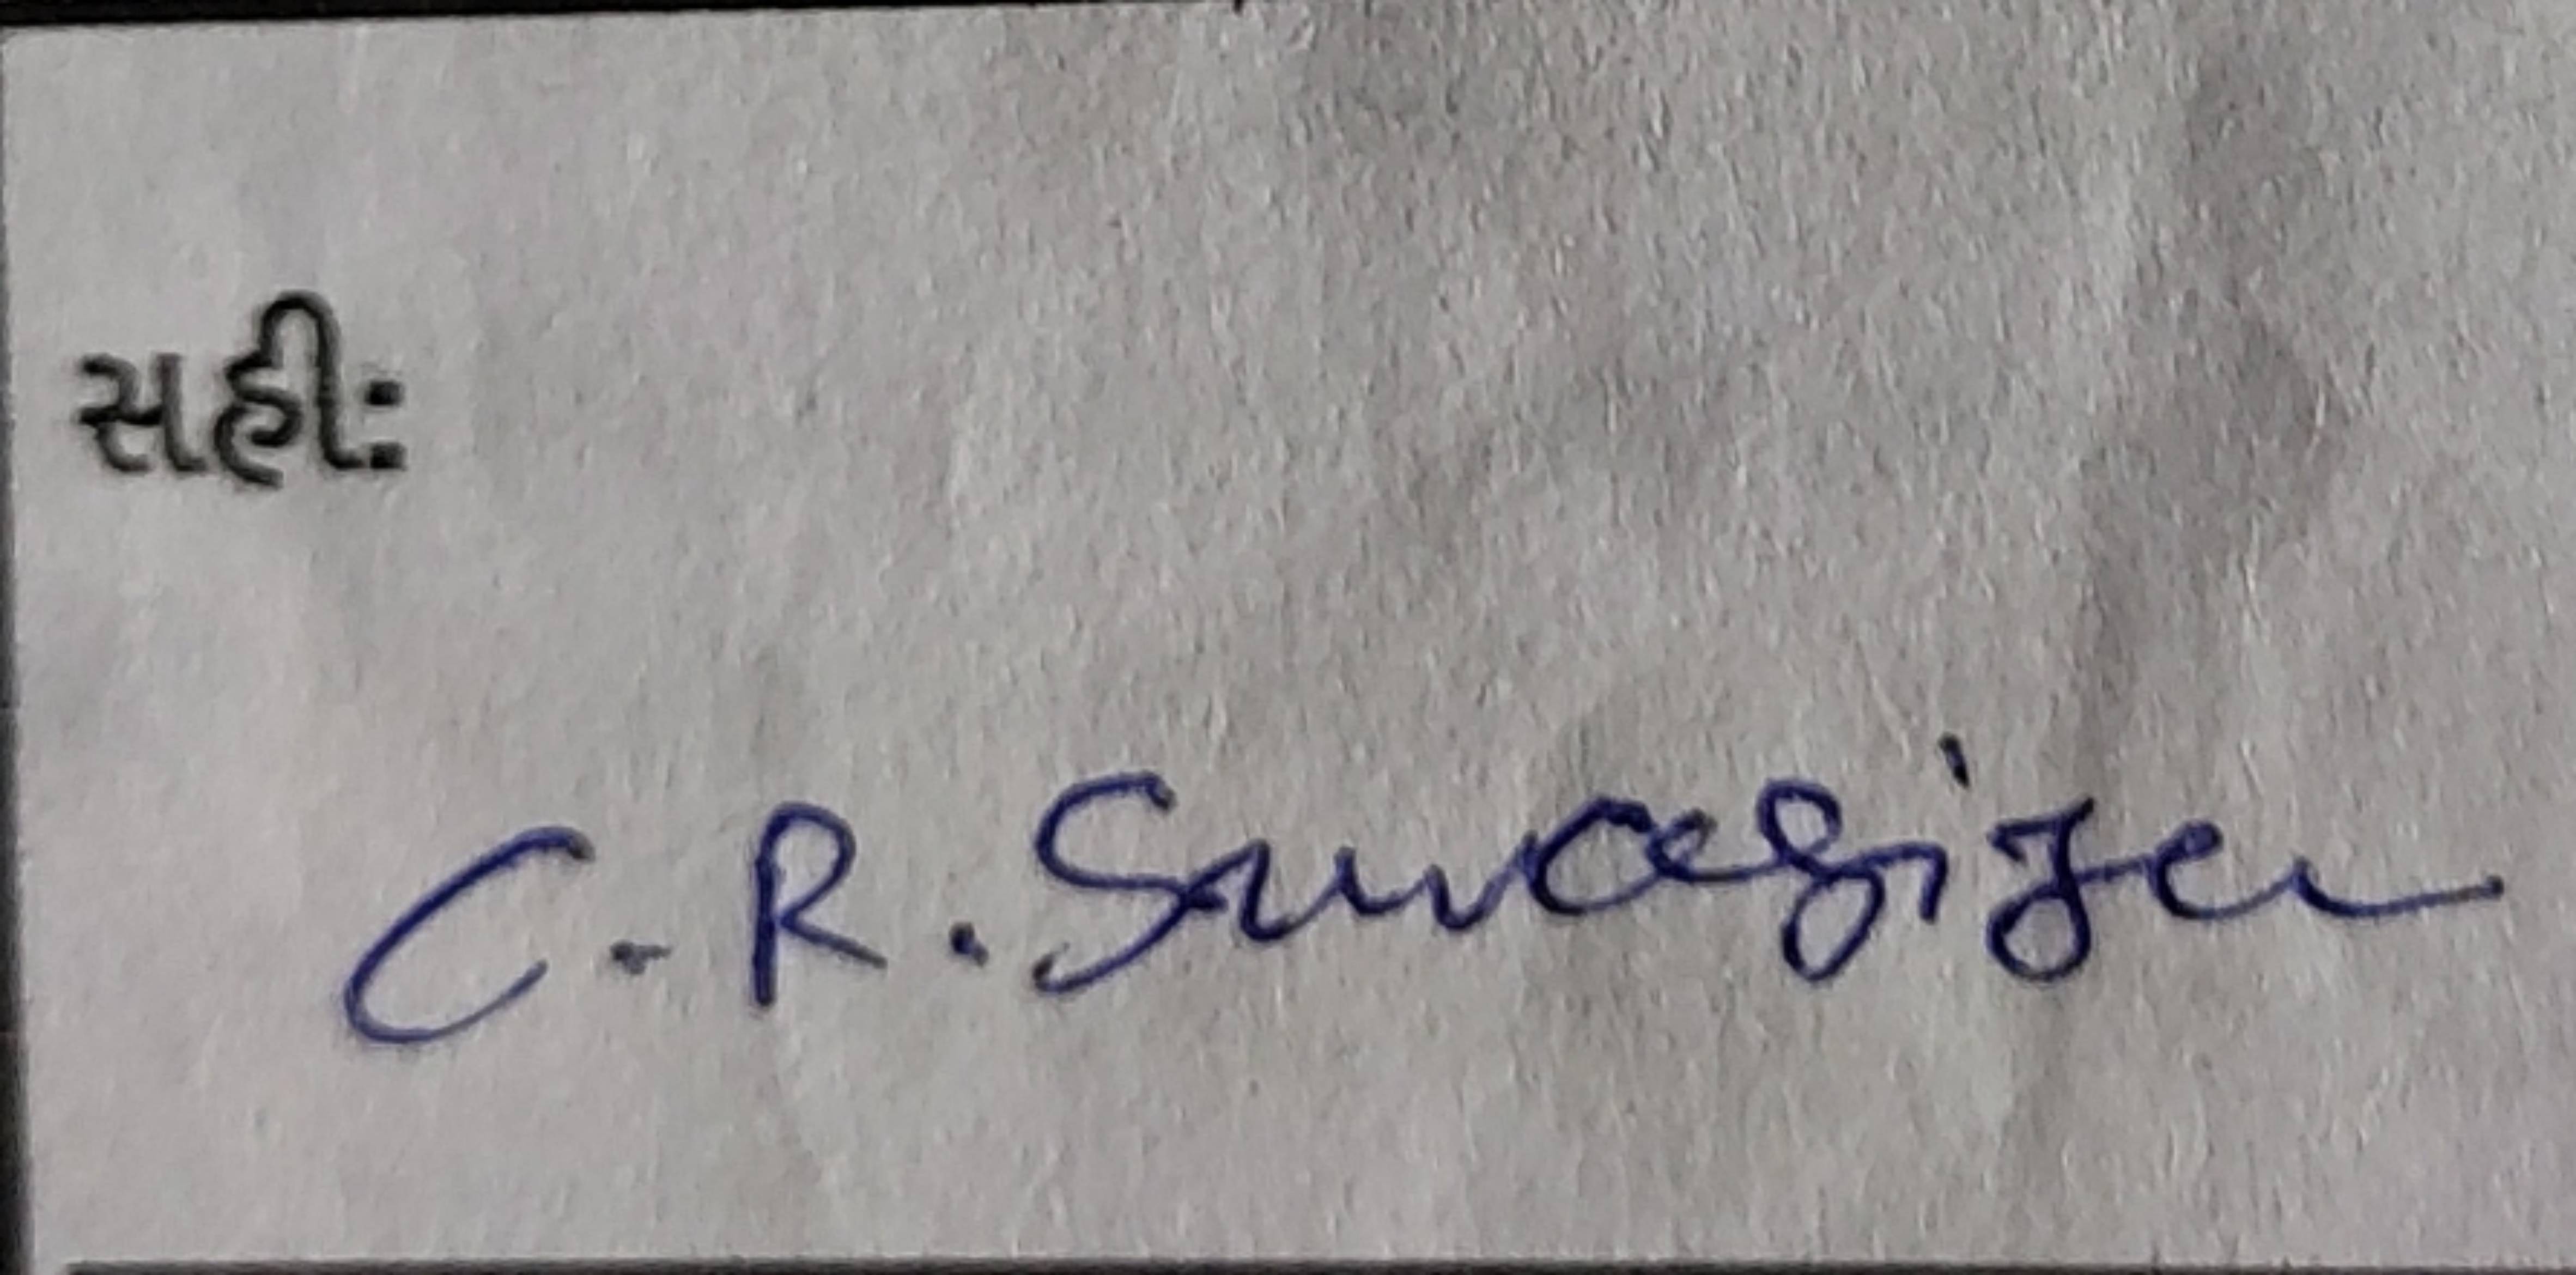 સહી:
C. R. Suvagiya